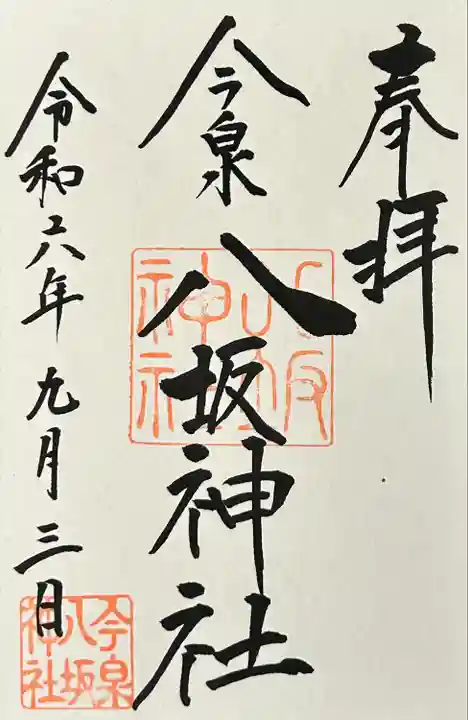 奉拝
今泉
八坂神社
令和六年 九月 三日
八坂
神社
今泉
八坂
神社